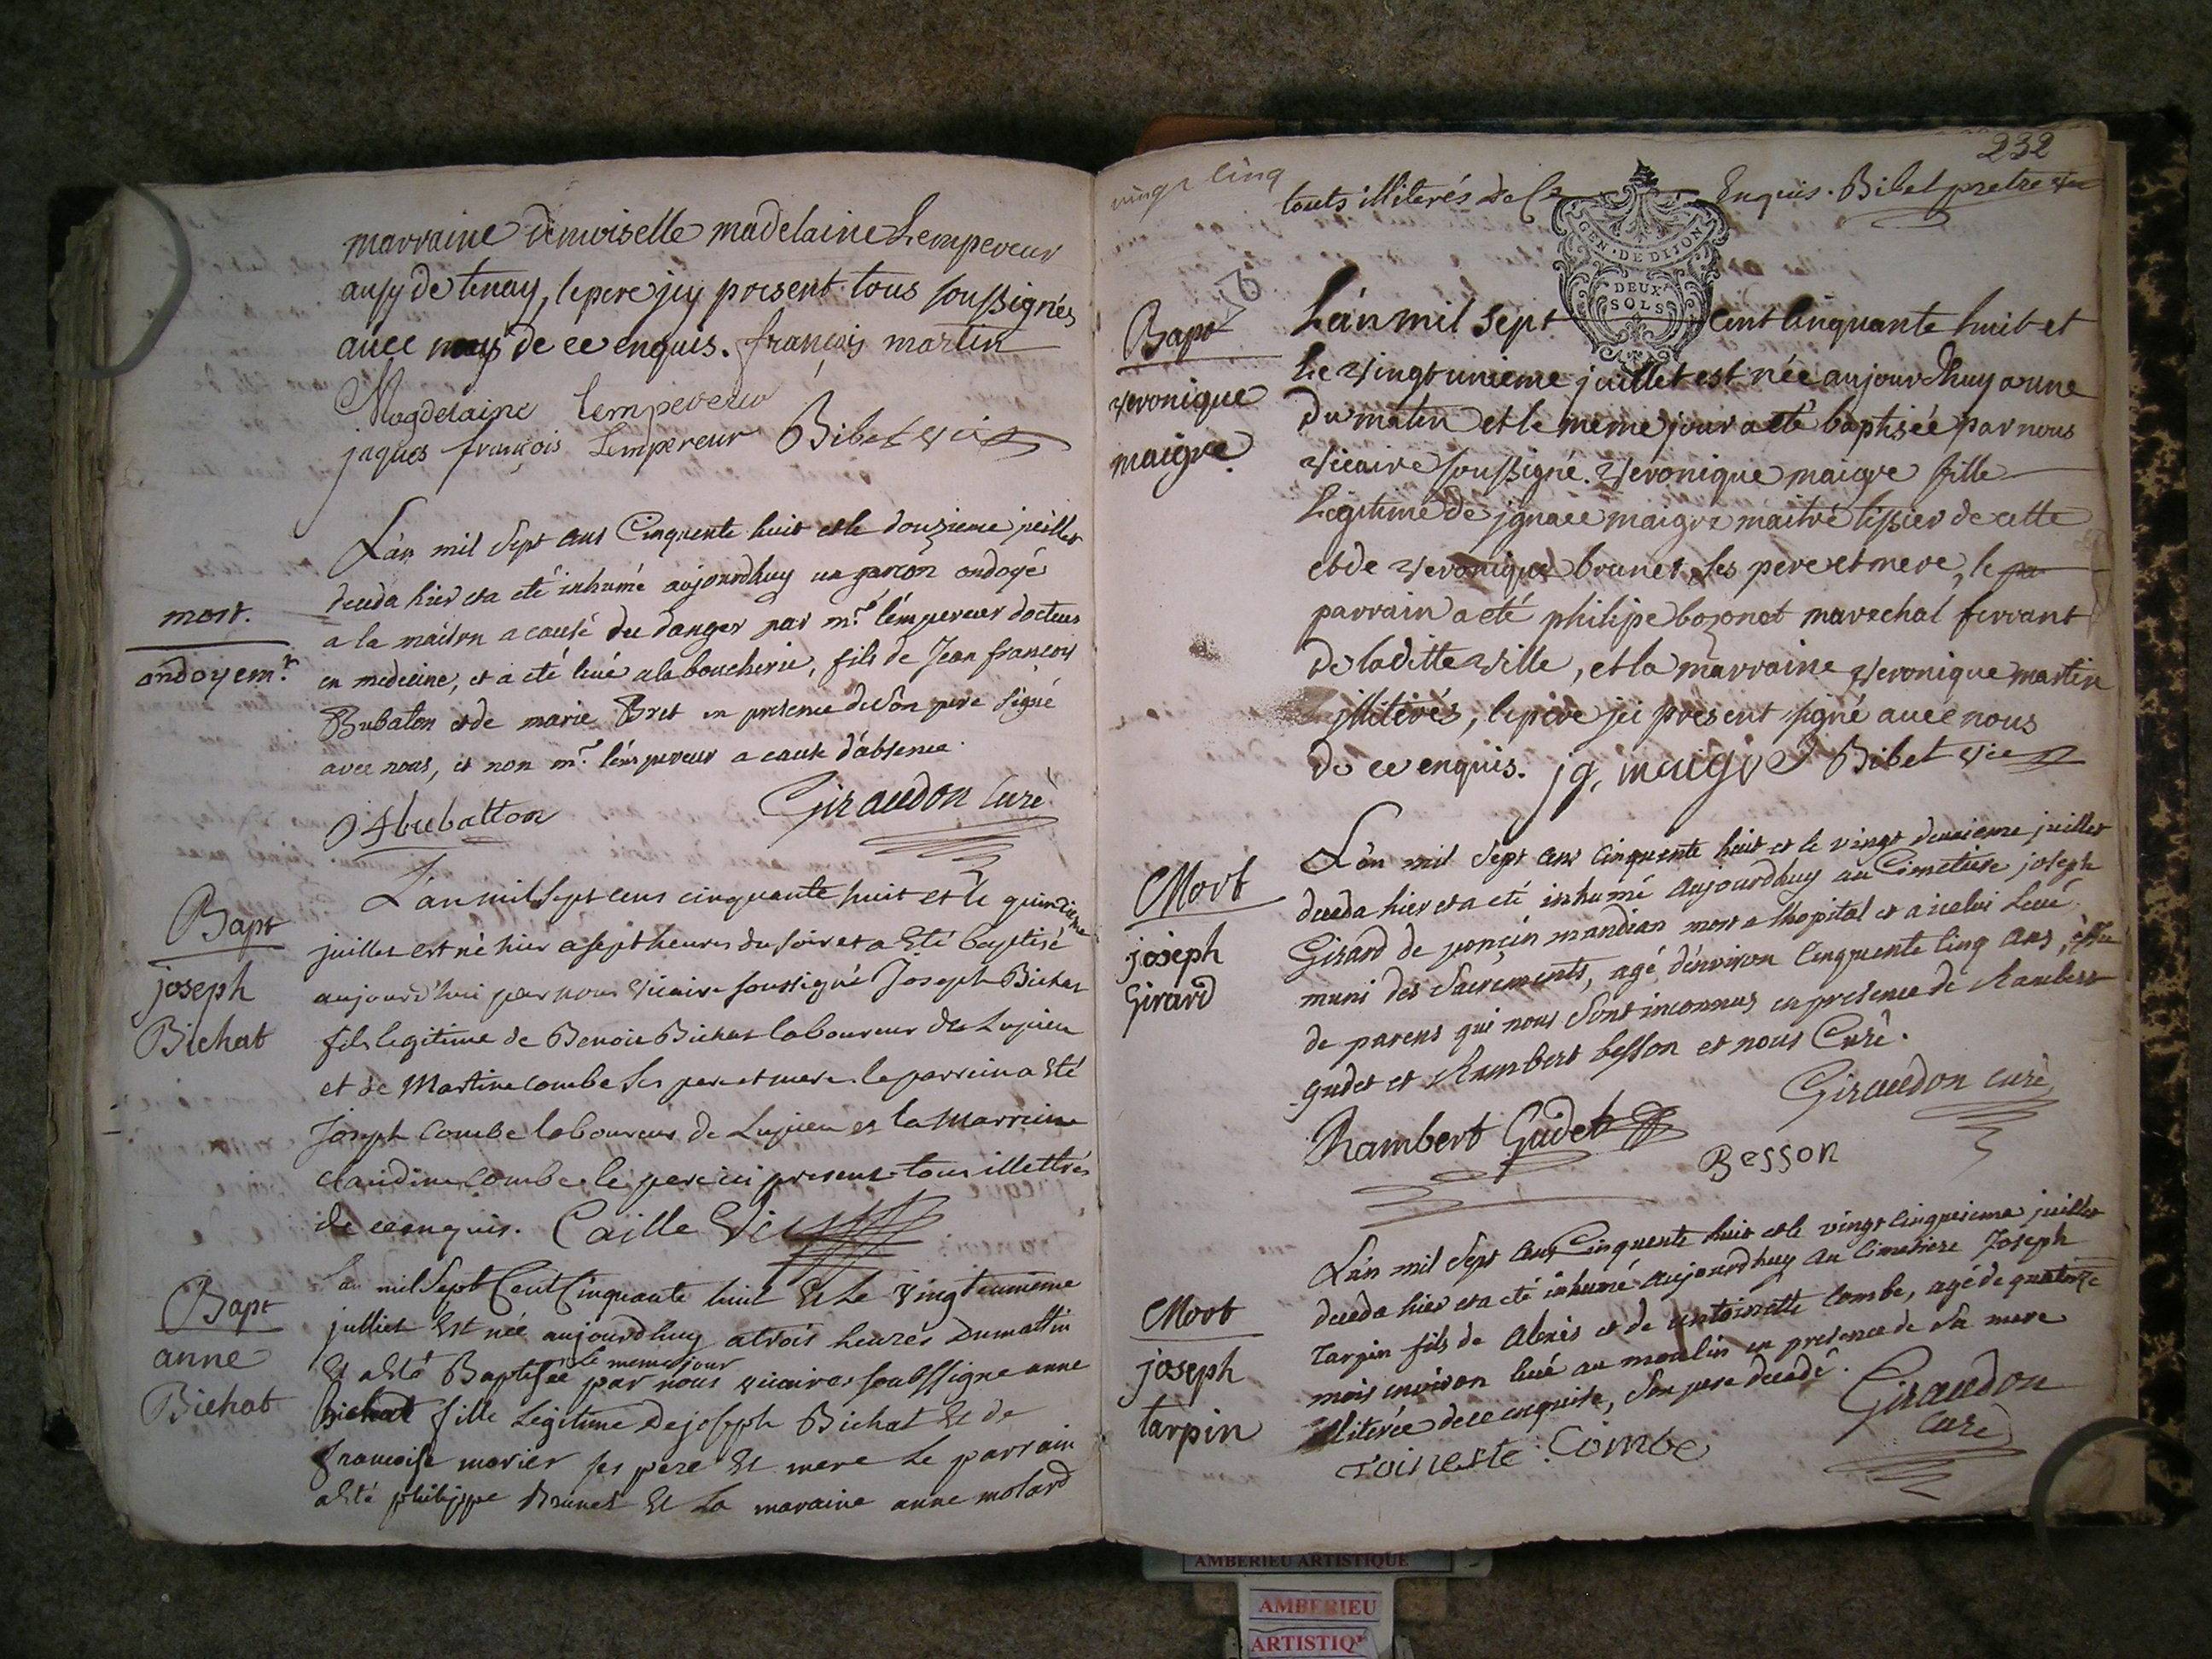 marraine demoiselle madelaine Lempereur
ausy de tenay, le pere jcy present tous soussignés
avec nous de ce enquis. françois martin
Magdelaine Lempereur
jaques françois Lempereur Bibet vic
mort.
ondoyem.t
L'an mil sept cens Cinquente huit et le douzieme juillet
deceda hier et a eté inhumé aujourdhuy un garcon ondoyé
a la maison a cause du danger par mr. lémpereur docteur
en medecine, et a eté levé a la boucherie, fils de Jean françois
Bubaton et de marie Bret en presence de son pere signé
avec nous, et non mr. lémpereur a cause d'absence.
Giraudon Curé
Bapt
joseph
Bichat
L'an mil sept cens cinquante huit et le quinzieme
juillet est né hier a sept heures du soir et a Eté baptisé
aujourd'hui par nous vicaire soussigné Joseph Bichat
fils legitime de Benoit Bichat laboureur de Lupieu
et de Martine combe ses pere et mere le parrein a Eté
Joseph Combe laboureur de Lupieu et la Marreine
claudine Combe le pere ici present tous illettrés
de ce enquis. Caille Vic
Bapt
anne
Bichat
Lan mil Sept Cent Cinquante huit Et Le Vingt eunième
julliet Est née aujourdhuy a trois heures Du mattin
Le meme jour
Et a Eté Baptisée par nous vicaires soubssigne anne
Bichat fille Legitime De joseph Bichat Et de
francoise morier ses pere Et mere Le parrain
a Eté philippe Brunet Et La maraine anne molard
232
vingt cinq
touts illiterés de Ce Enquis. Bibet pretre vic
GEN. DE DIJON
DEUX
SOLS
Bapt
veronique
maigre
L'an mil sept cent Cinquante huit et
Le vingt unieme juillet est née aujourdhuy a une
du matin et le meme jour a eté baptisée par nous
vicaire soussigné. Veronique maigre fille
Legitime de jgnace maigre maitre tissier de cette
et de veronique brunet ses pere et mere, le
parrain a eté philipe bozonet marechal ferrant
de laditte ville, et la marraine veronique martin
jlliterés, le père jci present signé avec nous
de ce enquis. jg. maigre Bibet vic
Mort
joseph
Girard
L'an mil sept cens cinquente huit et le vingt deuxieme juillet
deceda hier et a eté inhumé aujourdhuy au Cimetiere joseph
Girard de poncin mandian mort a lhopital et a icelui Levé
muni des Sacrements, agé d'environ Cinquente cinq ans, issu
de parens qui nous sont inconnus en presence de Rambert
gudet et Rambert besson et nous Curé.
Giraudon curé
Rambert Gudet
Besson
Mort
joseph
tarpin
L'an mil sept cens Cinquente huit et le vingt cinquieme juillet
deceda hier et a eté inhumé aujourdhuy au Cimetiere Joseph
Tarpin fils de Alexis et de antoinette Combe, agé de quatorze
mois environ levé au moulin en presence de sa mere
illiterée de ce enquise, son pere decedé.
Giraudon
curé
Toineste Combe
AMBERIEU ARTISTIQUE
AMBERIEU
ARTISTIQ